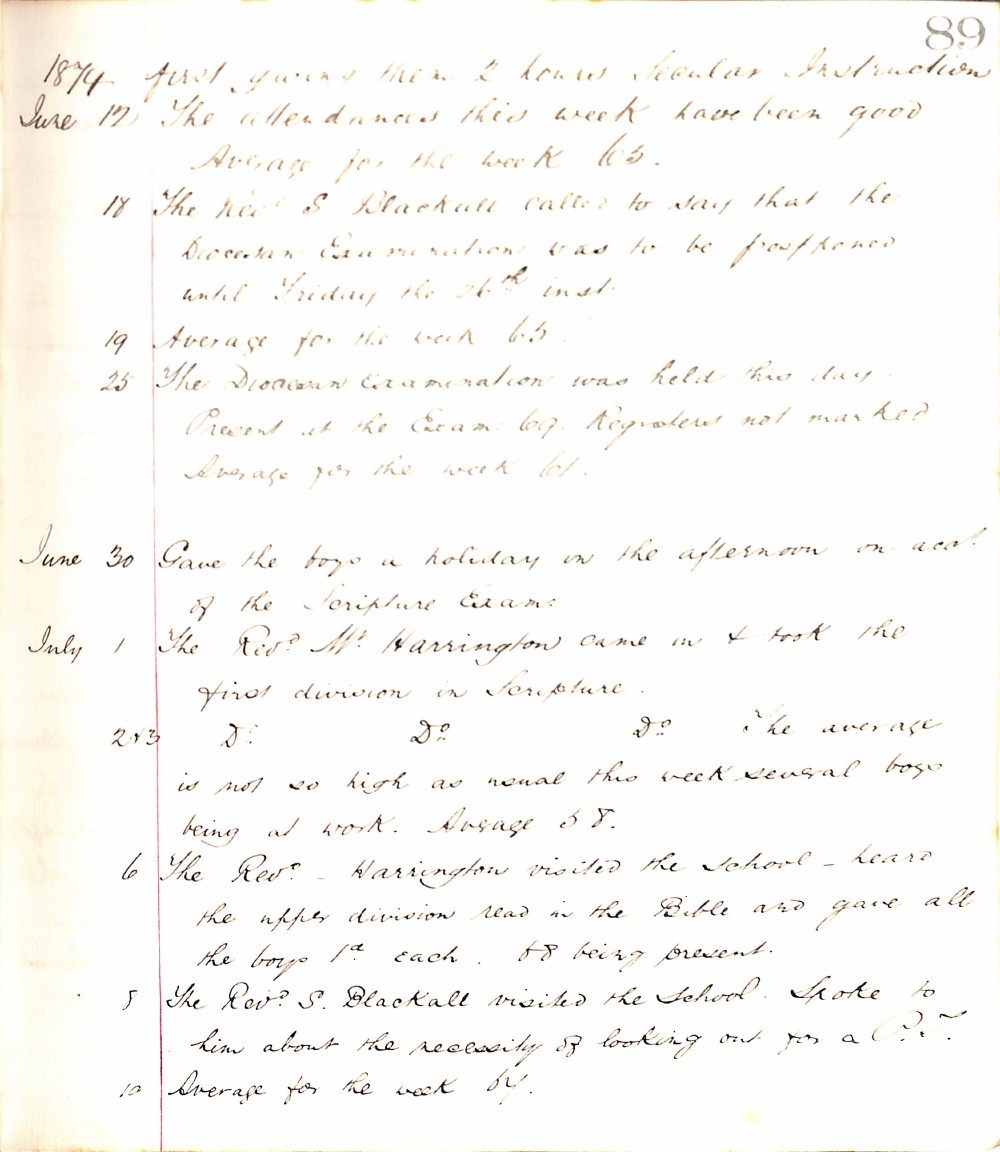 89
1874 first giving them 2 hours Secular Instruction
June 12 The attendances this week have been good
Average for the week 65.
18 The Revd S Blackall called to say that the
Diocesan Examination was to be postponed
until Friday the 26th inst.
19 Average for the week 65.
25 The Diocesan Examination was held this day.
Present at the Exam: 69. Registers not marked
Average for the week 61.
June 30 Gave the boys a holiday in the afternoon on acct.
of the Scripture Exam:
July 1 The Revd Mr Harrington came in & took the
first division in Scripture.
2 & 3 Do Do Do The average
is not so high as usual this week several boys
being at work. Average 58.
6 The Revd - Harrington visited the school - heard
the upper division read in the Bible and gave all
the boys 1d each. being present.
The Revd S. Blackall visited the school. Spoke to
him about the necessity of looking out for a P.T.
10 Average for the week